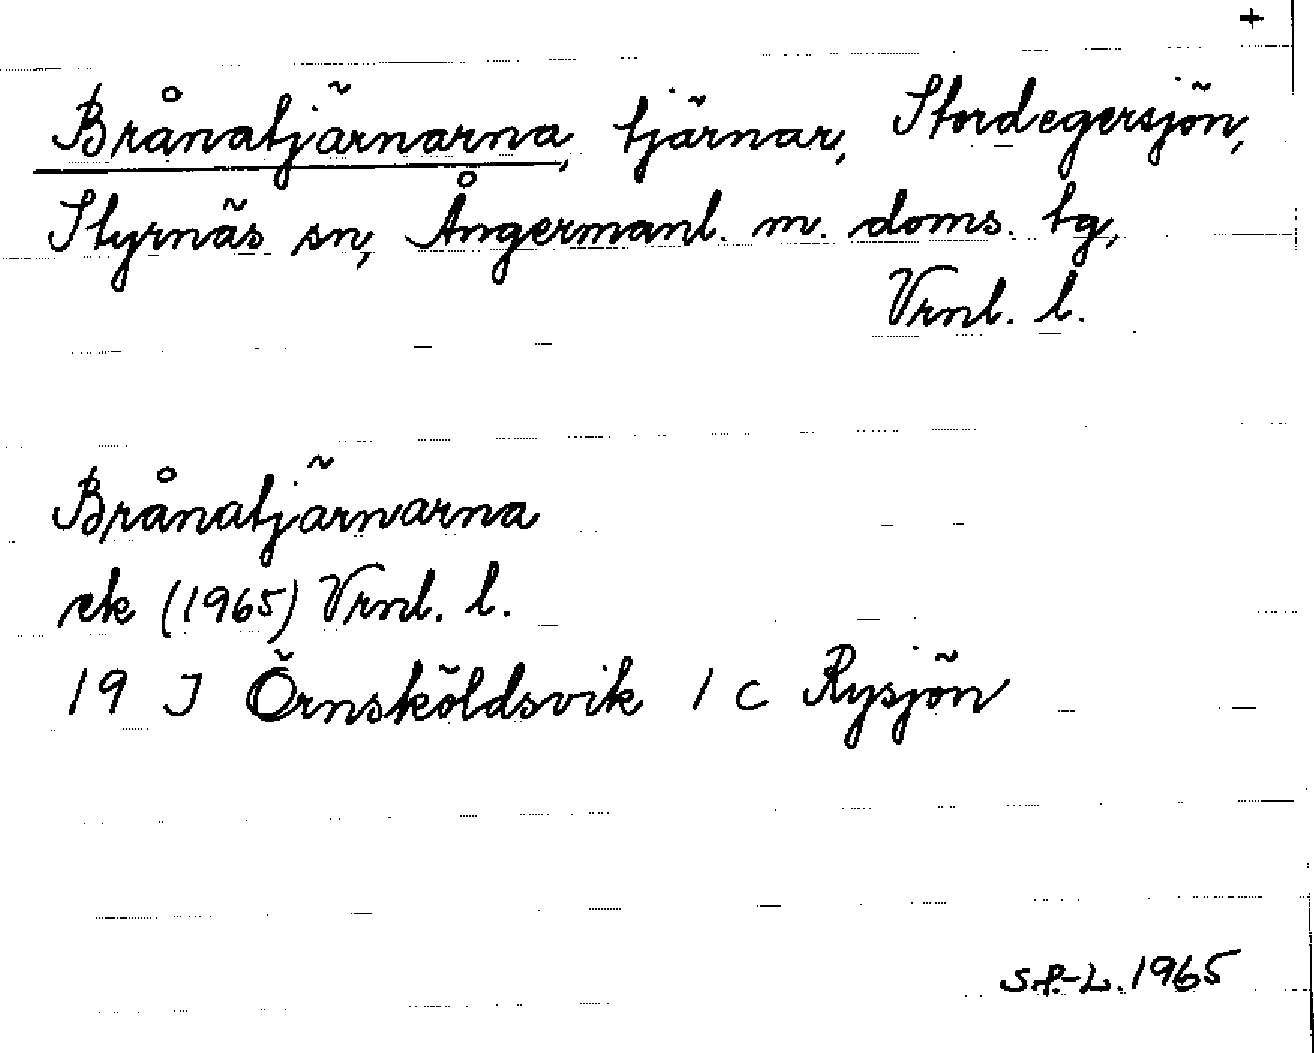 +
Brånatjärnarna, tjärnar, Stordegersjön,
Styrnäs sn, Ångermanl. m. doms. tg,
Vrnl. l.
Brånatjärnarna
ek (1965) Vrnl. l.
19 J Örnsköldsvik 1 c Rysjön
S.P.-L. 1965